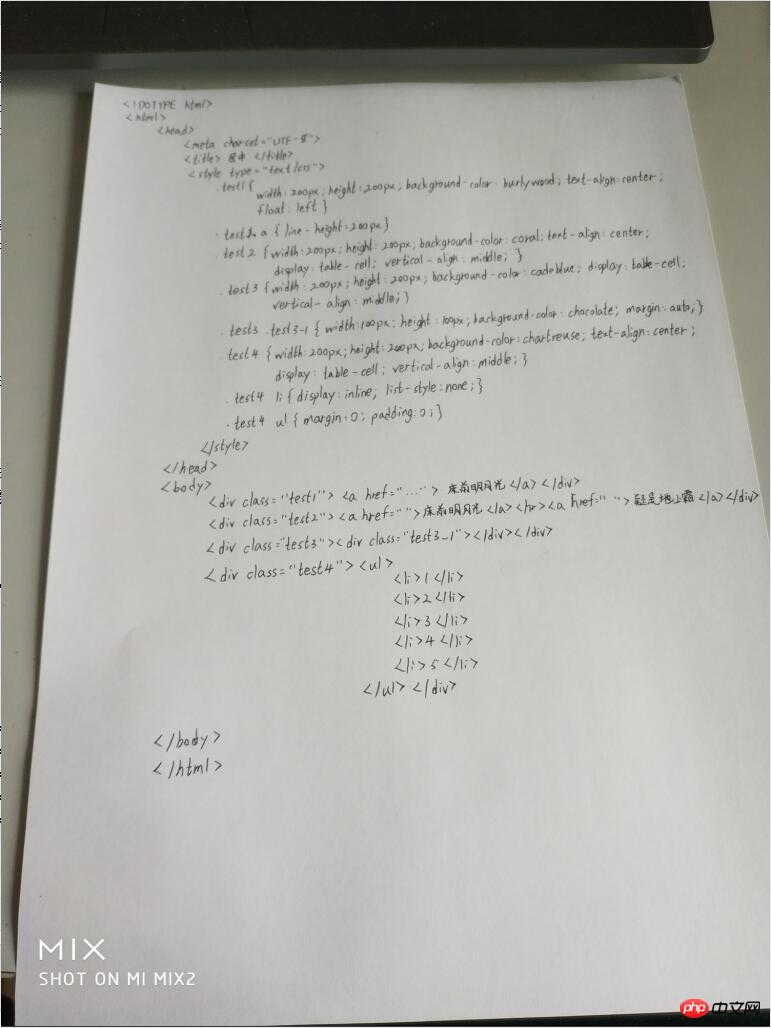 <!DOTYPE html>
<html>
<head>
<meta charset="UTF-8">
<title> 居中 </title>
<style type="text/css">
.test1 {
width:200px; height:200px; background-color: burlywood; text-align:center;
float: left }
.test1 a { line-height:200px}
.test2 {width:200px; height: 200px; background-color: coral; text-align: center;
display: table-cell; vertical-align: middle; }
.test3 {width:200px; height:200px; background-color: cadeblue; display: table-cell;
vertical-align: middle; }
.test3 .test3-1 { width:100px; height:100px; background-color: chocolate; margin:auto; }
.test4 {width:200px; height:200px; background-color: chartreuse; text-align: center;
display: table-cell; vertical-align: middle; }
.test4 li { display: inline; list-style:none; }
.test4 ul { margin:0; padding:0; }
</style>
</head>
<body>
<div class="test1"> <a href="....."> 床前明月光 </a> </div>
<div class="test2"> <a href=" "> 床前明月光 </a> <hr> <a href=" "> 疑是地上霜 </a> </div>
<div class="test3"><div class="test3-1"></div></div>
<div class="test4"> <ul>
<li>1 </li>
<li>2 </li>
<li>3 </li>
<li>4 </li>
<li>5 </li>
</ul> </div>
</body>
</html>
MIX
SHOT ON MI MIX2
php中文网